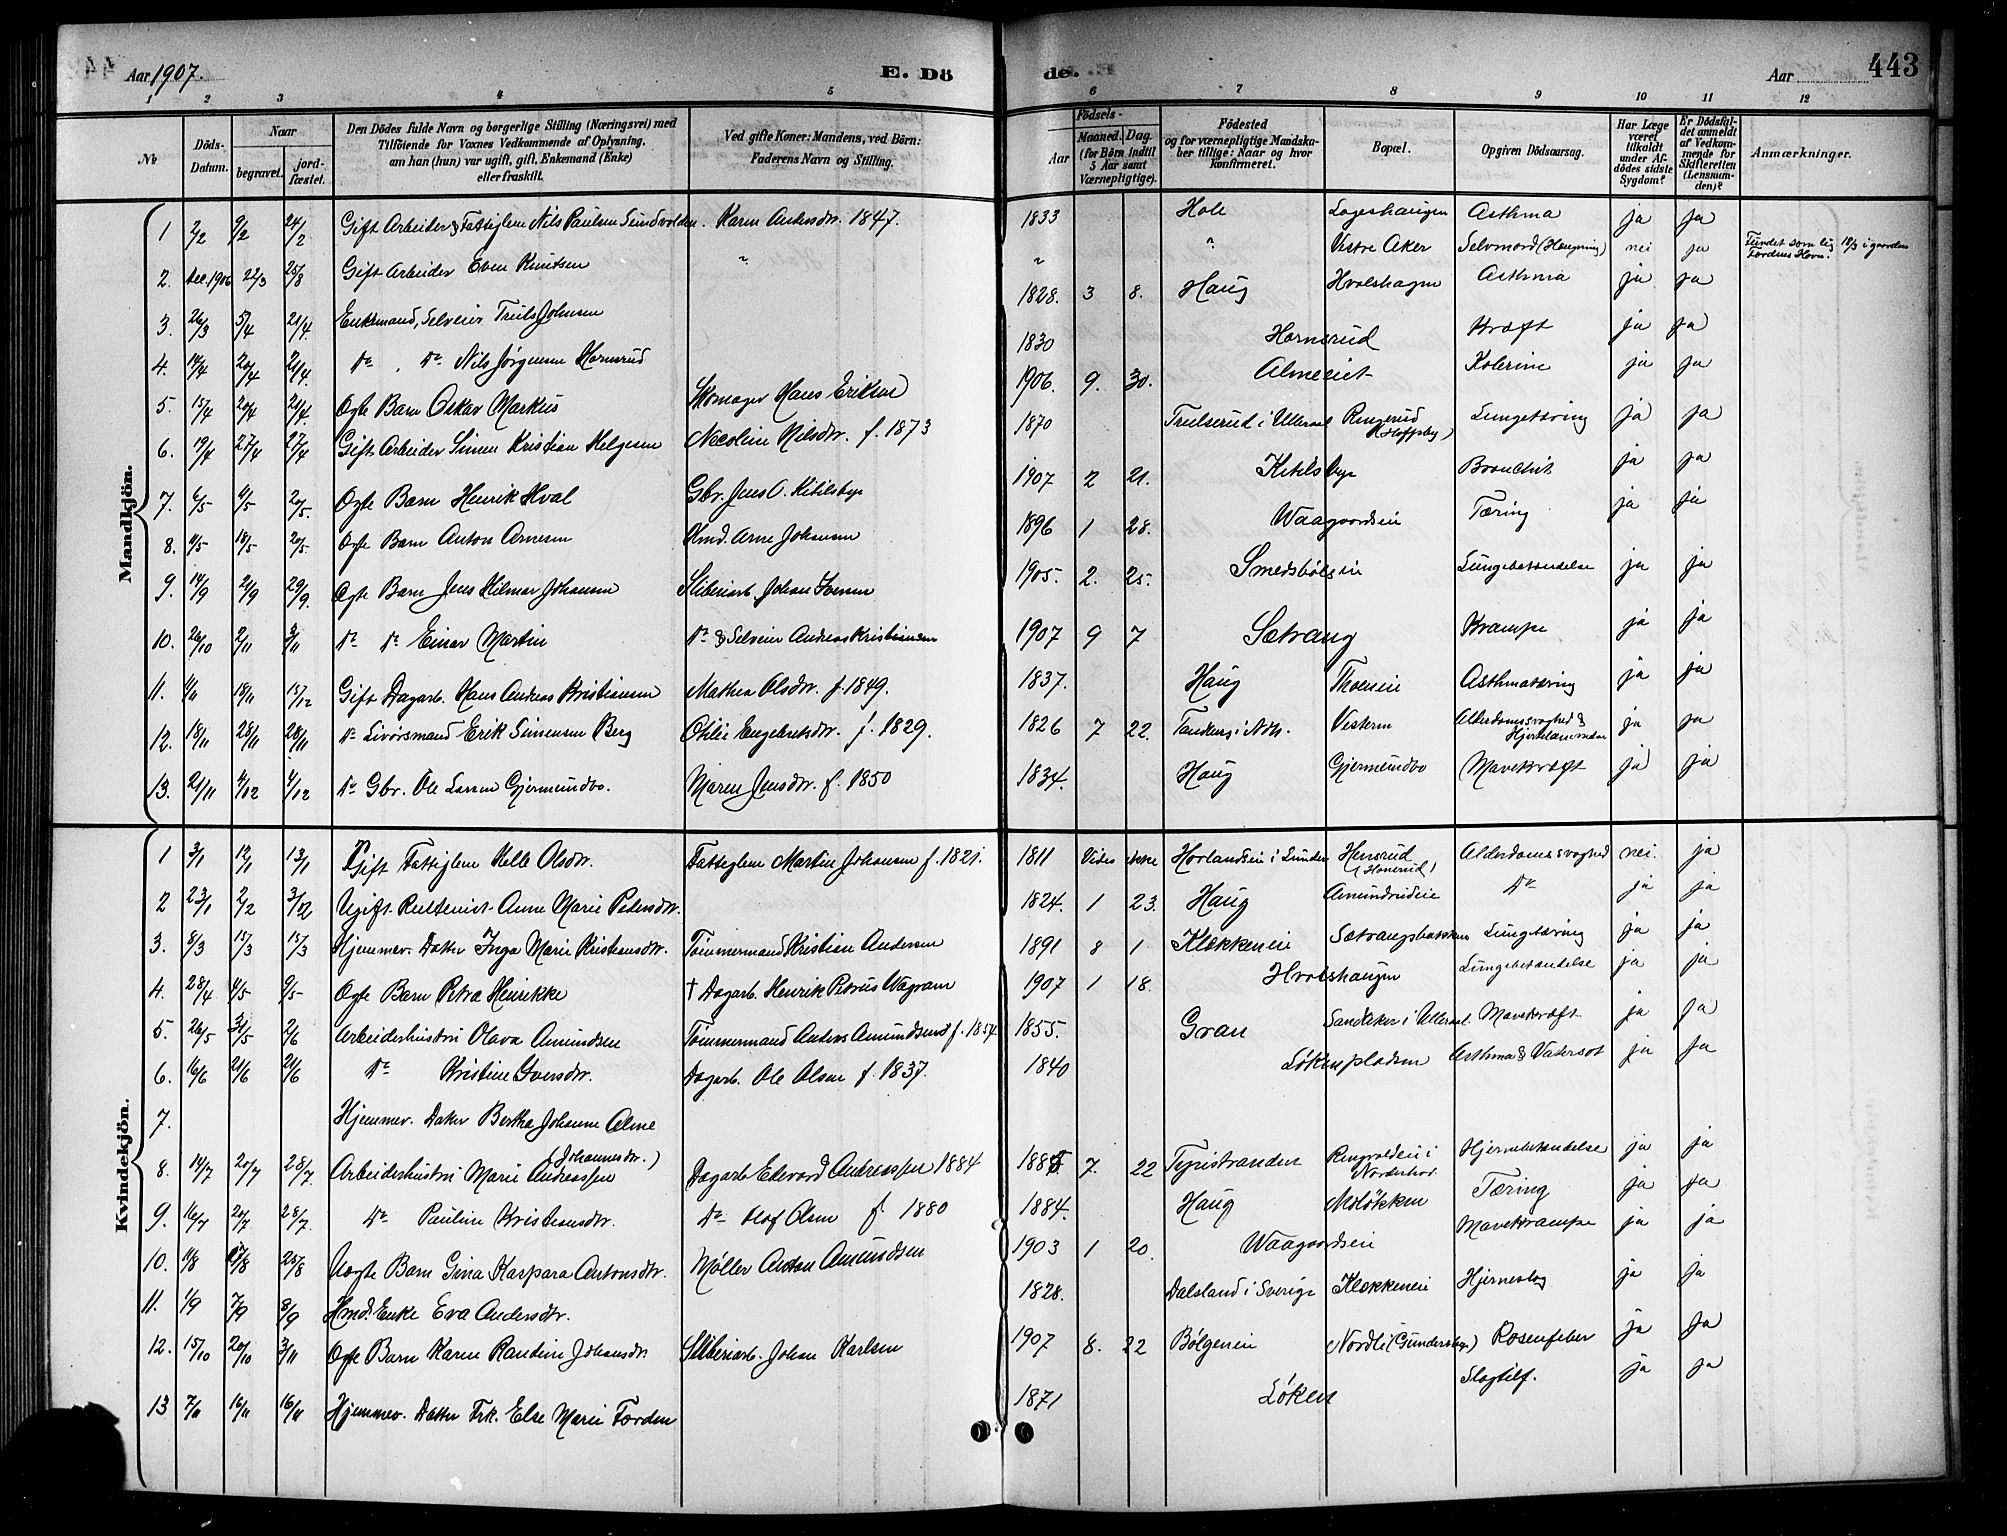 Aar 1907.
E. Dö
de.
Aar
443
1 2 3 4 5 6 7 8 9 10 11 12
№
Döds-Datum.
Naar
begravet.
jordfæstet.
Den Dödes fulde Navn og borgerlige Stilling (Næringsvei) med
Tilföiende for Voxnes Vedkommende af Oplysning,
om han (hun) var ugift, gift, Enkemand (Enke)
eller fraskilt.
Ved gifte Koner: Mandens, ved Börn:
Faderens Navn og Stilling.
Födsels-
Aar
Maaned. Dag.
(for Börn indtil
5 Aar samt
Værnepligtige).
Födested
og for værnepligtige Mandska-
ber tillige: Naar og hvor
konfirmeret.
Bopæl.
Opgiven Dödsaarsag.
Har Læge
været
tilkaldt
under Af-
dödes sidste
Sygdom?
Er Dödsfal-
det anmeldt
af Vedkom-
mende for
Skifteretten
(Lensmæn-
den)?
Anmærkninger.
Mandkjön.
1 2/2 9/2 24/2 Gift Arbeider & Fattiglem Nils Paulsen Sundvolden. Karen Andersdr. 1847. 1833 Hole Asthma ja ja
2. Dec. 1906 22/3 25/8 Gift Arbeider Even Knutsen " " " Vestre Aker Selvmord (Hængning) nei ja Fundet som lig 18/3 i gaarden
3. 26/3 5/4 21/4. Enkemand, Selveier Truls Johnsen 1828. 3 8. Haug Asthma ja ja
4. 14/4 20/4 21/4. Do, Do Nils Jörgensen Hornsrud 1830 Hornsrud Kræft ja ja
5. 15/4 20/4 21/4. Ægte Barn Oskar Markus Skomager Hans Eriksen 1906. 9. 30. Almeeiet Kolerine ja ja
6. 19/4 27/4 27/4 Gift Arbeider Simen Kristian Helgesen Nicoline Nilsdr. f. 1873 1870 Trulserud i Ulleraal Ringerud Lungetæring ja ja
7. 6/5 20/5. Ægte Barn Henrik Hval Gbr. Jens O. Ketilsby 1907 2 21. Ketilsby Bronchit ja ja
8. 18/5 20/5 Ægte Barn Anton Arnesen Hmd. Arne Johansen 1896 1 28. Waagaardseie Tæring ja ja
9. 14/9 21/9 29/9. Ægte Barn Jens Hilmar Johansen Sliberiarb. Johan Iversen 1905. 2. 25. Smedsbölseie Lungebetændelse ja ja
10. 26/10 2/11 3/11 Do Do Einar Martin Do & Selveier Andreas Kristiansen 1907 9 7 Sætrang Krampe ja ja
11. 18/11 15/12 Gift Dagarb. Hans Andreas Kristiansen Mathea Olsdr. f. 1849. 1837. Haug Asthmatæring ja ja
12. 18/11 28/11 28/11 Do Livörsmand Erik Simensen Berg Othilie Engebretsdr. f. 1829. 1826 7 22. Vestern Alderdomssvaghed & ja ja
13. 21/11 4/12 4/12 Do Gbr. Ole Larsen Gjermundbo. Maren Jensdr. f. 1850 1834. Haug Gjermundbo Mavekræft ja ja
Kvindekjön.
1 3/1 12/1 13/1 Gift Fattiglem Helle Olsdr. Fattiglem Martin Johansen f. 1821. 1811 Vides ikke Hovlandseie i Lunder Hensrud Alderdomssvaghed nei. ja
2 23/1 2/2 Ugift Anne Marie Pedersdr. 1824. 1 23. Haug Amundrudeie Do ja ja
3. 8/3 15/3 15/3 Hjemmev. Datter Inga Marie Kristiansdr. Tömmermand Kristian Andersen 1891 8 1 Klækkeneie Sætrangsbakken Lungetæring ja ja
4. 28/4 4/5 9/5 Ægte Barn Petra Henrikke † Dagarb. Henrik Petrus Wagram 1907 1 18. Hvalshaugen Lungebetændelse ja ja
5. 26/5 31/5 2/6 Arbeiderhustru Olava Amundsen Tömmermand Anders Amundsen f. 1854 1855. Gran Sandaker i Ulleraal. Mavekræft ja ja
6. 16/6 21/6 21/6 Do Kristine Iversdr. Dagarb. Ole Olsen f. 1837. 1840 Lökenpladsen Asthma & Vatersot ja ja
7. Hjemmev. Datter Bertha Johanne Alme
(Johannesdr.)
8. 14/7 20/7 28/7. Arbeiderhustru Marie Andreassen Dagarb. Edvard Andreassen 1884 1885 7. 22 Tyristranden Ringvoldeie i Norderhov Hjernebetændelse ja ja
9. 16/7 20/7 28/7. Do Pauline Kristiansdr. Do Olaf Olsen f 1880 1884. Haug Moløkken Tæring ja ja
10. 25/8 Uægte Barn Gina Kaspara Antonsdr. Møller Anton Amundsen 1903 1 20. Waagaardseie Mavekrampe ja ja
11. 1/9 7/9 8/9 Hmd. Enke Eva Andersdr. 1828. Dalsland i Sverige Klækkeneie Hjerneslag ja ja
12. 15/10 20/10 3/11 Ægte Barn Karen Randine Johansdr. Sliberiarb. Johan Karlsen 1907 8. 22 Bölgeneie Nordli (Gundersby) Rosenfeber ja ja
13 7/11 16/11 16/11 Hjemmev. Datter Frk. Else Marie Forden 1871 Löken Slagtilf. ja ja